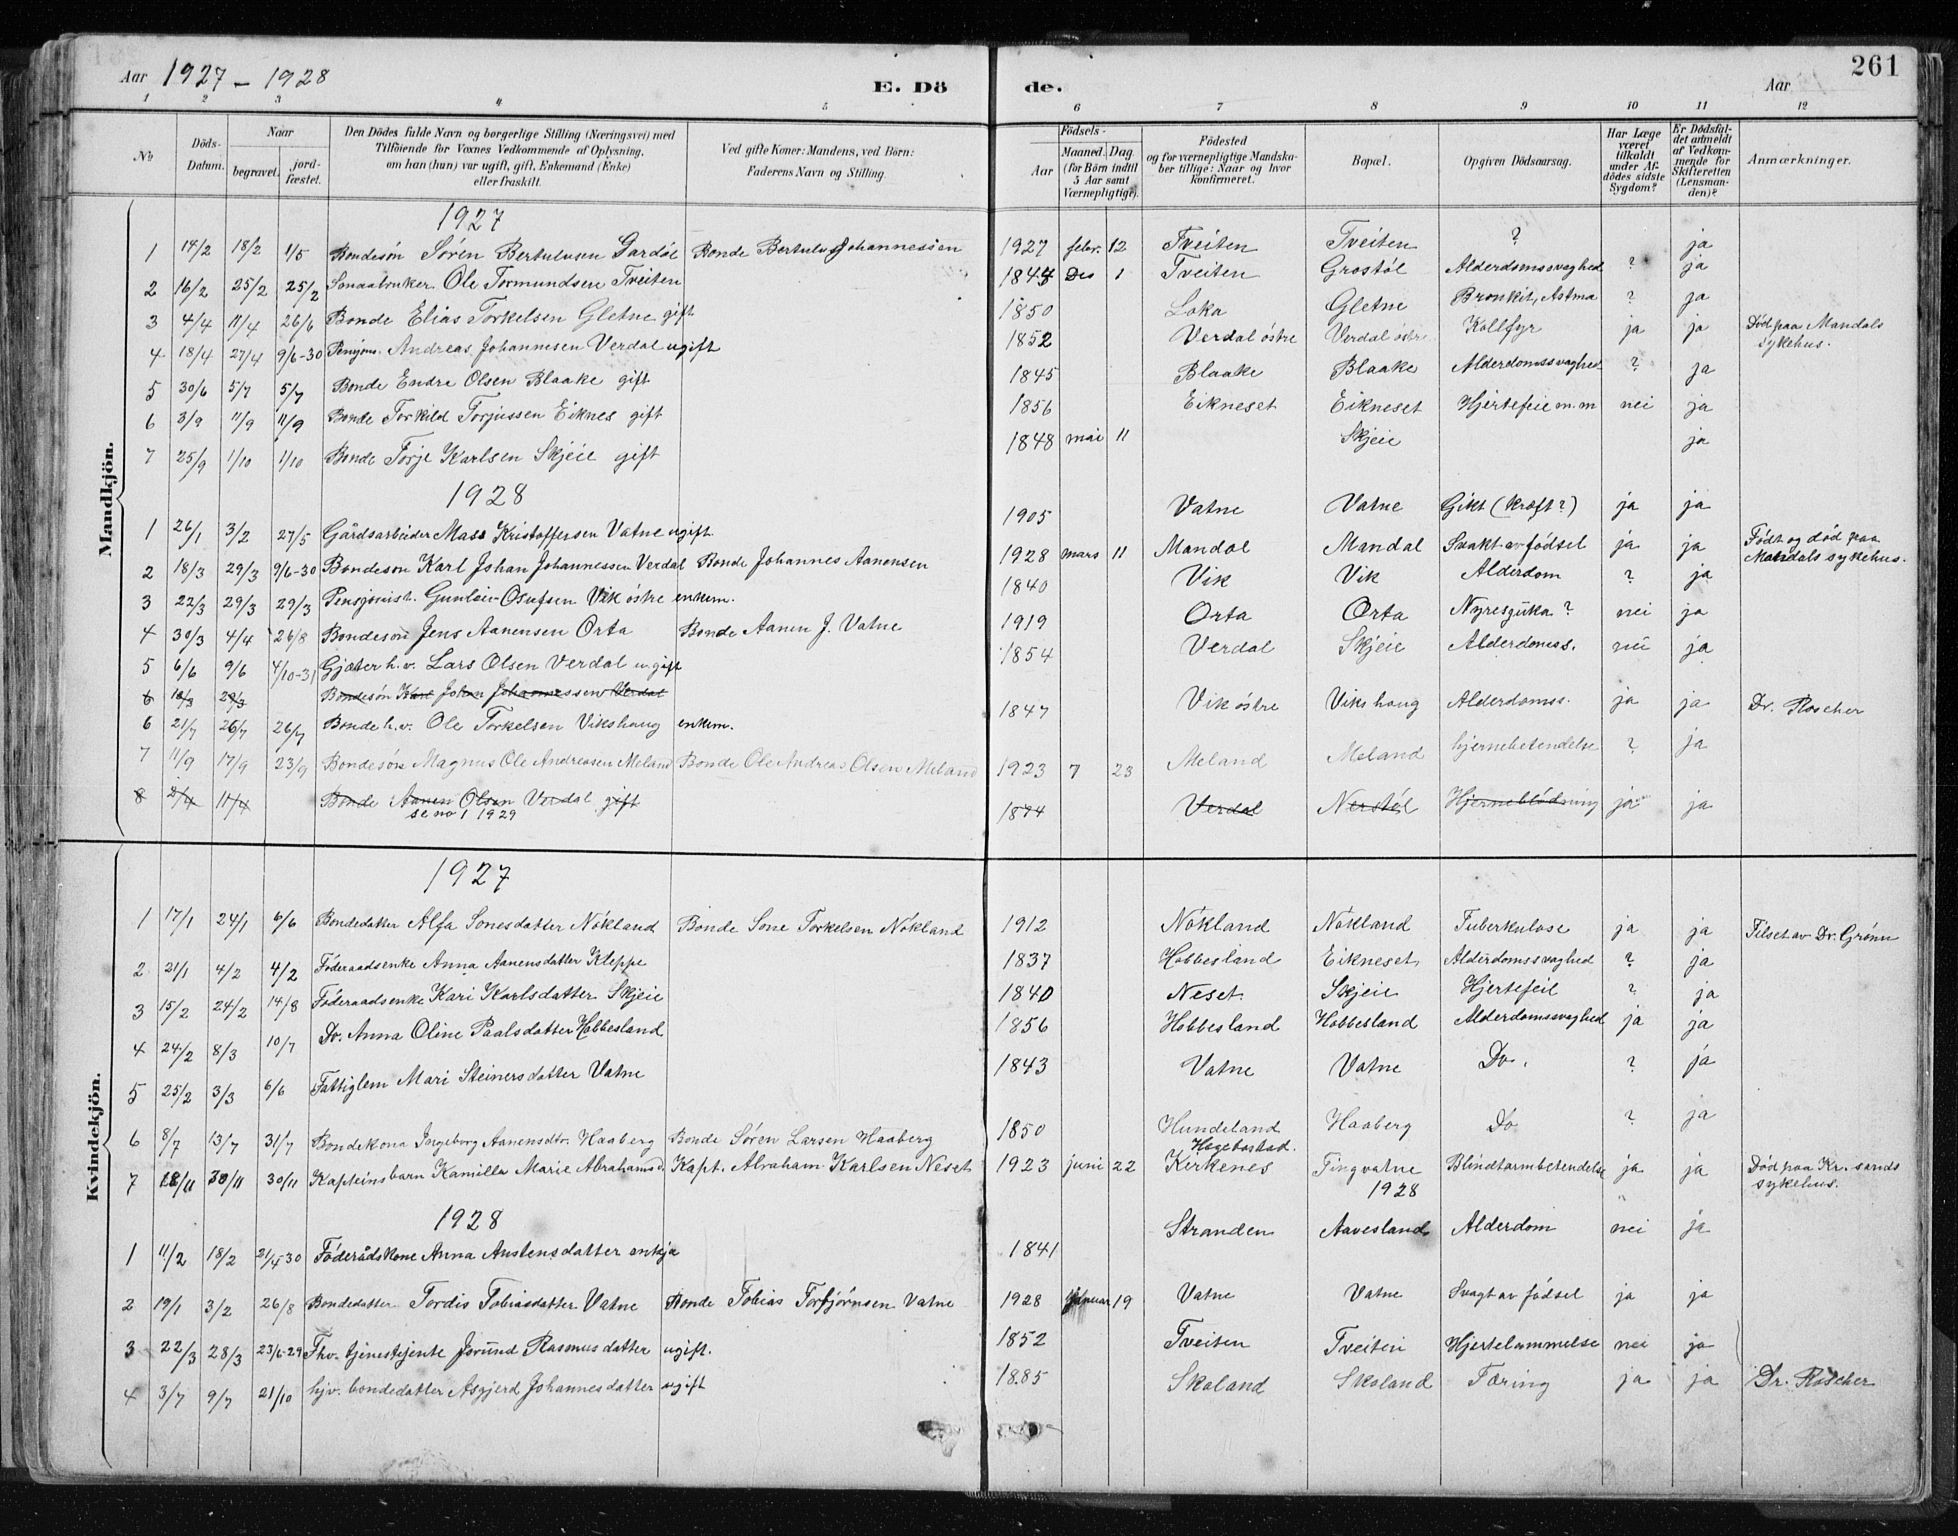 261
Aar 1927 – 1928 E. Dö de. Aar
1 2 3 4 5 6 7 8 9 10 11 12
No
Döds-Datum.
Naar
begravet. jord-fæstet.
Den Dödes fulde Navn og borgerlige Stilling (Næringsvei) med
Tilföiende for Voxnes Vedkommende af Oplysning,
om han (hun) var ugift, gift, Enkemand (Enke)
eller fraskilt.
Ved gifte Koner: Mandens, ved Börn:
Faderens Navn og Stilling.
Födsels-
Aar
Maaned. Dag
(for Börn indtil
5 Aar samt
Værnepligtige).
Födested
og for værnepligtige Mandska-
ber tillige: Naar og hvor
konfirmeret.
Bopæl.
Opgiven Dödsaarsag.
Har Læge
været
tilkaldt
under Af-
dödes sidste
Sygdom?
Er Dödsfal-
det anmeldt
af Vedkom-
mende for
Skifteretten
(Lensman-
den)?
Anmærkninger.
Mandkjön.
1927
1 14/2 18/2 1/5 Bondesøn Søren Bertulusen Gardøl Bonde Bertulus Johannessen 1927 febr. 12 Tveiten Tveiten ? ja
2 16/2 25/2 25/2 Smaabruker Ole Tormundsen Tveiten 1844 Des 1 Tveiten Grostøl Alderdomssvaghed ? ja
3 4/4 11/4 26/6 Bonde Elias Torkelsen Gletne gift 1850 Loka Gletne Bronkit, Astma ? ja
4 18/4 27/4 9/6-30 Pensjons. Andreas Johannesen Verdal ugift 1852 Verdal østre Verdal østre Kollfyr ja ja Død paa Mandals
sykehus.
5 30/6 5/7 5/7 Bonde Endre Olsen Blaake gift 1845 Blaake Blaake Alderdomssvaghed ? ja
6 3/9 11/9 11/9 Bonde Torkild Torjussen Eiknes gift 1856 Eikneset Eikneset Hjertefeie m.m nei ja
7 25/9 1/10 1/10 Bonde Torje Karlsen Skjeie gift 1848 mai 11 Skjeie ja
1928
1 26/1 3/2 27/5 Gårdsarbeider Mass Kristoffersen Vatne ugift 1905 Vatne Vatne Gikt (kræft?) ja ja
2 18/3 29/3 9/6-30 Bondesøn Karl Johan Johannessen Verdal Bonde Johannes Aanensen 1928 mars 11 Mandal Mandal Svakt av fødsel ja ja Født og død paa
Mandals sykehus.
3 22/3 29/3 29/3 Pensjonist. Gunleiv Osufsen Vik østre enkem. 1840 Vik Vik Alderdom ? ja
4 30/3 4/4 26/8 Bondesøn Jens Aanensen Orta Bonde Aanen J. Vatne 1919 Orta Orta Nyresyuka? nei ja
5 6/6 9/6 4/10-31 Gjæter h.v. Lars Olsen Verdal ugift 1854 Verdal Skjeie Alderdomss. nei ja
6 18/3 29/3 Bondesøn Karl Johan Johannessen Verdal
6 21/7 26/7 26/7 Bonde h.v. Ole Torkelsen Vikshaug enkem. 1847 Vik østre Vikshaug Alderdomss. ja ja Dr. Roscher
7 11/9 17/9 23/9 Bondesøn Magnus Ole Andreasen Meland Bonde Ole Andreas Olsen Meland 1923 7 23 Meland Meland hjernebetendelse ? ja
8 11/4 Bonde Aanen Olsen Verdal gift 1874 Verdal Nerstøl Hjerneblødning ja ja
se no 1 1929
Kvindekjön.
1927
1 17/1 24/1 6/6 Bondedatter Alfa Sonesdatter Nökland Bonde Sone Torkelsen Nökland 1912 Nökland Nökland Tuberkulose ja ja Tilset av Dr. Grönn
2 21/1 4/2 4/2 Föderaadsenke Anna Aanensdatter Kleppe 1837 Hobbesland Eikneset Alderdomssvaghed ? ja
3 15/2 24/2 14/8 Föderaadsenke Kari Karlsdatter Skjeie 1840 Neset Skjeie Hjertefeil ? ja
4 24/2 8/3 10/7 Do. Anna Oline Paalsdatter Hobbesland 1856 Hobbesland Hobbesland Alderdomssvaghed ja ja
5 25/2 3/3 6/6 Fattiglem Mari Steinersdatter Vatne 1843 Vatne Vatne Do. ? ja
6 8/7 13/7 31/7 Bondekona Ingeborg Aanensdtr. Haaberg Bonde Søren Larsen Haaberg 1850 Hundeland Haaberg Do ? ja
Hægebostad.
7 28/11 30/11 30/11 Kapteinsbarn Kamilla Marie Abrahamsd. Kapt. Abraham Karlsen Neset 1923 juni 22 Kirkenes Tingvatne Blindtarmbetendelse ja ja Død paa Kr.sands
sykehus.
1928 1928
1 11/2 18/2 21/4 30 Föderådskone Anna Anstensdatter enkja 1841 Stranden Aavesland Alderdom nei ja
2 19/1 3/2 26/8 Bondedatter Tordis Tobiasdatter Vatne Bonde Tobias Torfjørnsen Vatne 1928 januar 19 Vatne Vatne Svagt av födsel ja ja
3 22/3 28/3 23/6-29 Fhv. tjenestejente Jorund Rasmusdatter ugift. 1852 Tveiten Tveiten Hjertelammelse nei ja
4 3/7 9/7 21/10 hjv. bondedatter Asgjerd Johannesdatter ugift 1885 Skoland Skoland Tæring ja ja Dr. Roscher